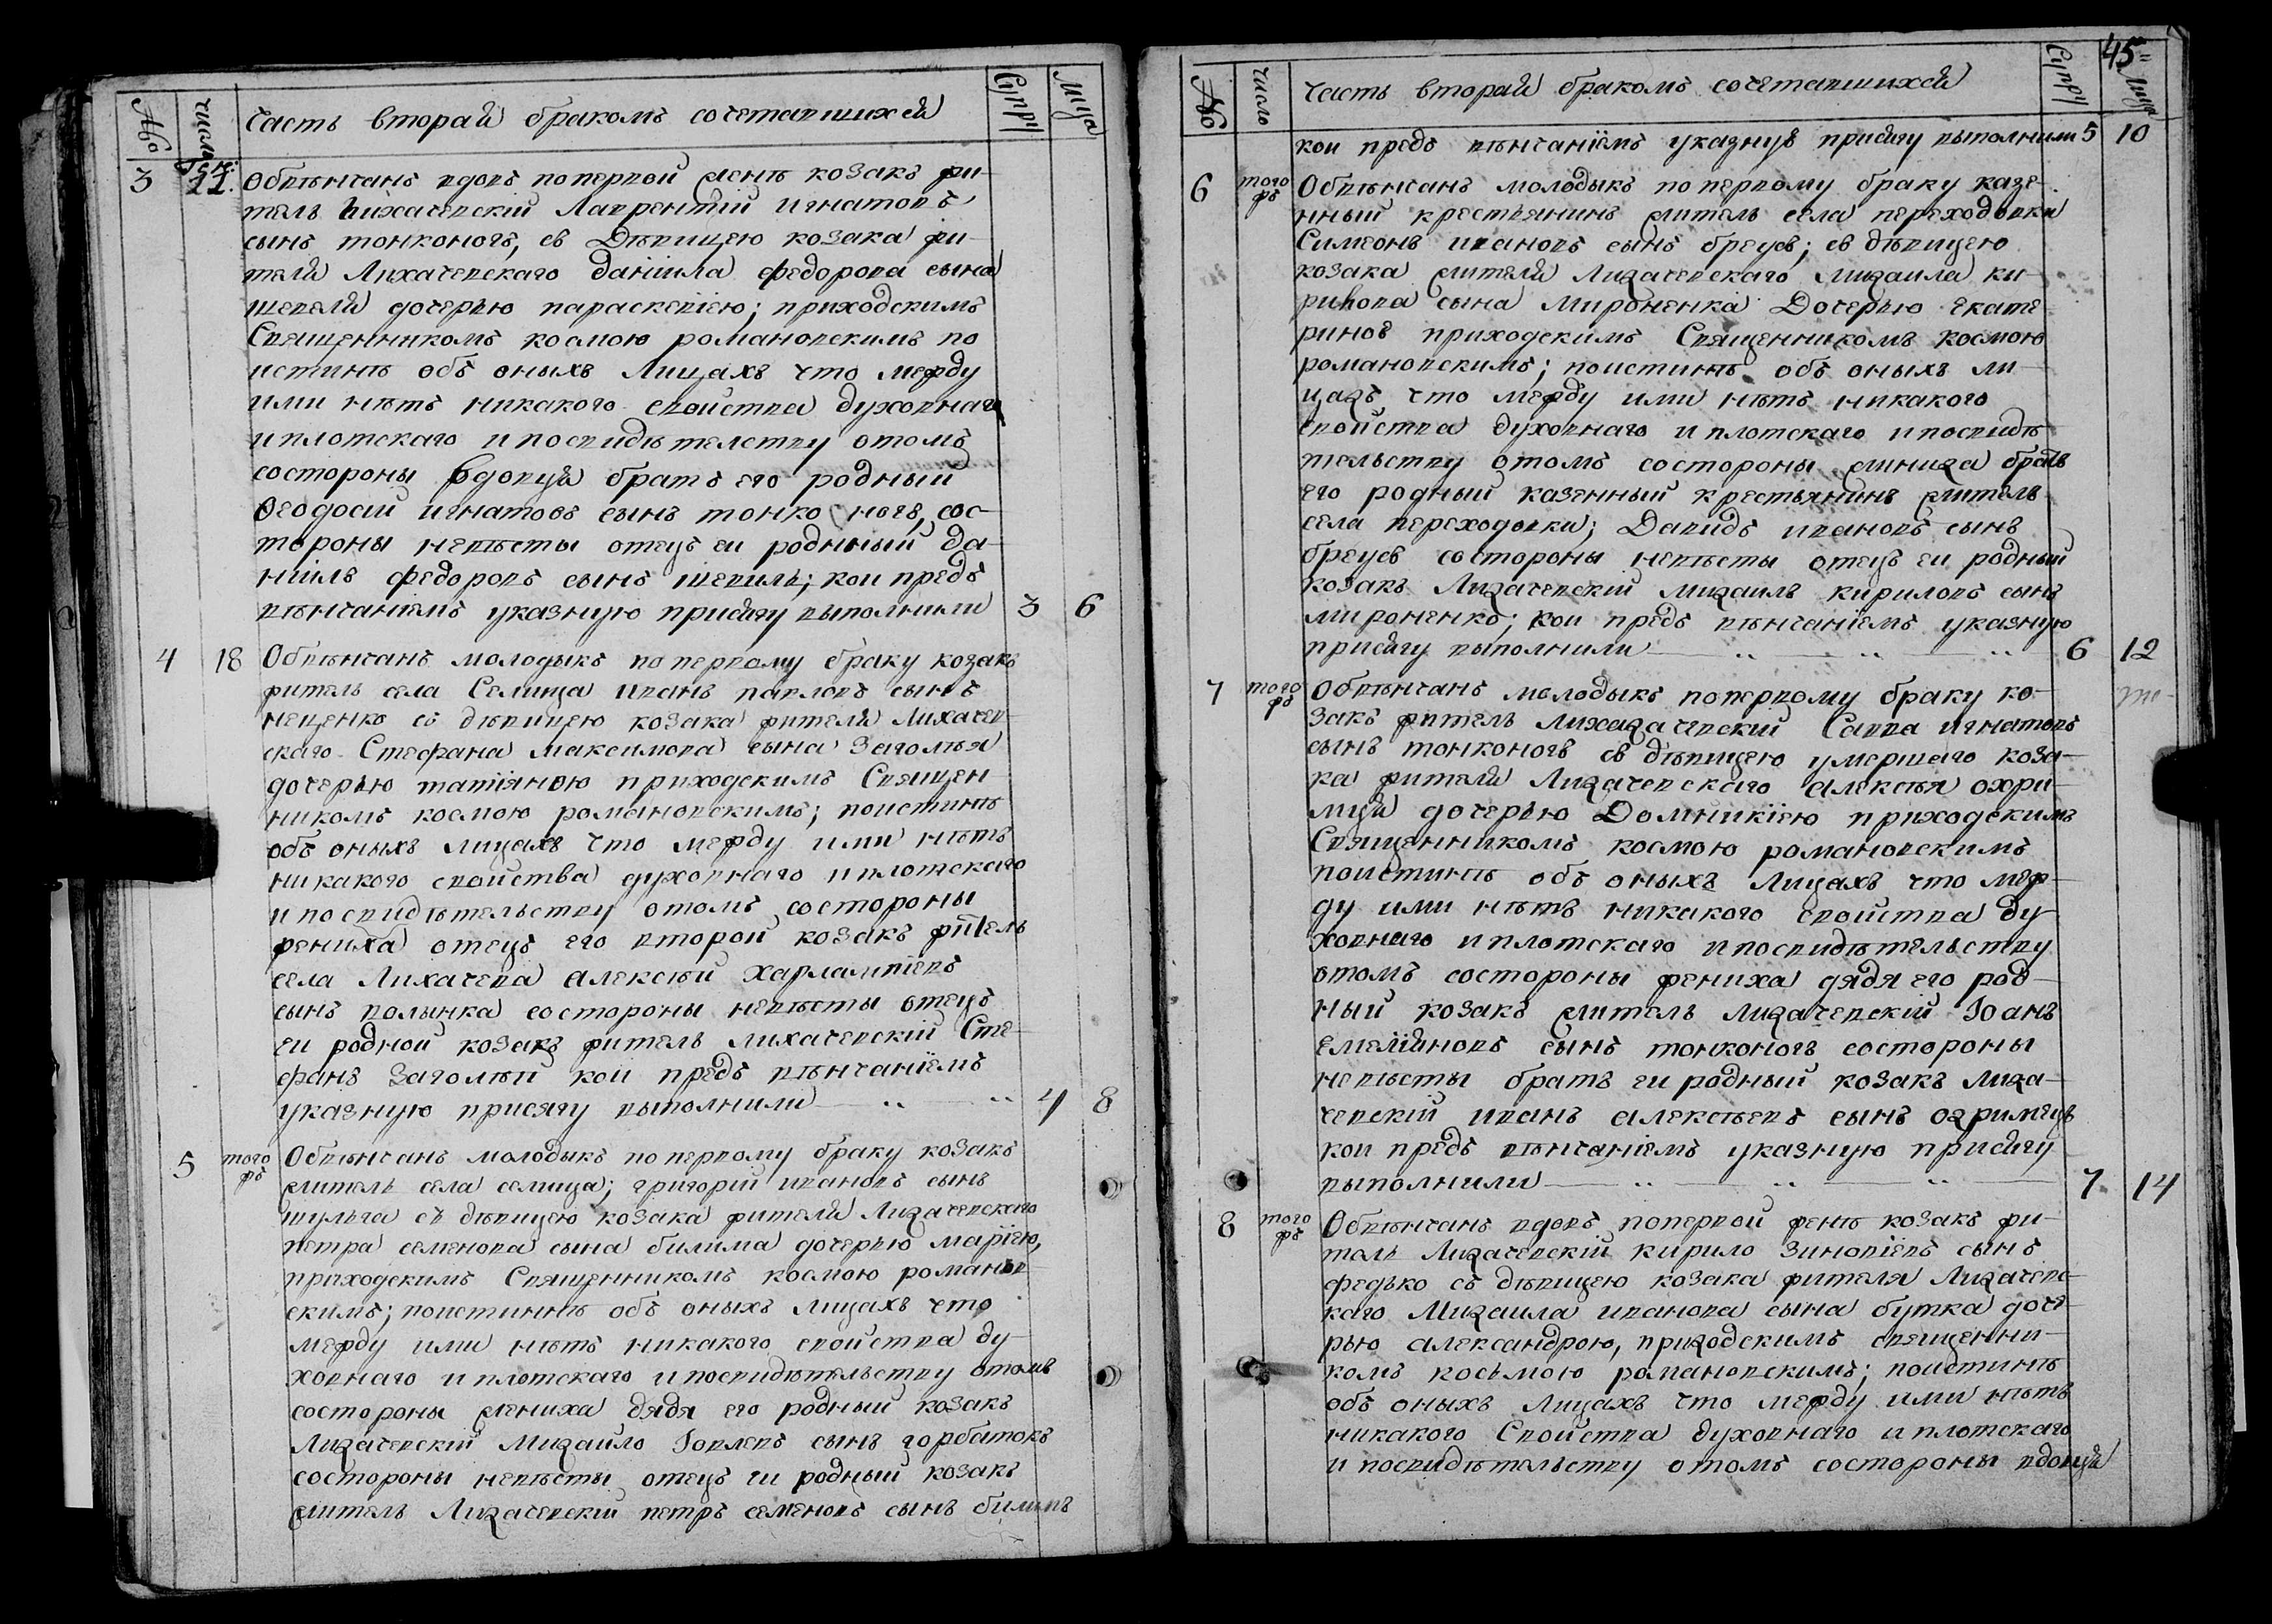 № число Часть вторая бракомъ сочетавшихся Супру Лица
3 Ген: 11. Обвѣнчанъ вдовъ по первой женѣ козакъ жи-
тель Лихачевскій Лаврентій игнатовъ
сынъ тонконогъ, съ Дѣвицею козака жи-
теля Лихачевскаго даніила федорова сына
шевеля дочерью параскевіею; приходскимъ
Священникомъ космою романовскимъ по
истинѣ объ оныхъ Лицахъ что между
ими нѣтъ никакого свойства духовнаго
и плотскаго и по свидѣтелству о томъ
состороны вдовця братъ его родный
Ѳеодосій игнатовъ сынъ тонконогъ, сос-
тороны невѣсты отецъ еи родный да-
ніилъ федоровъ сынъ шевиль; кои предъ
вѣнчаніемъ указную присягу выполнили 3 6
4 18 Обвѣнчанъ молодыкъ по первому браку козакъ
житель села Селища иванъ павловъ сынъ
неценко съ дѣвицею козака жителя Лихачев-
скаго Стефана Максимова сына Заголѣя
дочерью татіяною приходскимъ Священ-
никомъ космою романовскимъ; поистинѣ
объ оныхъ лицахъ что между ими нѣтъ
никакого свойства духовнаго и плотскаго
и по свидѣтельству о томъ состороны
жениха отецъ его второй козакъ житель
села Лихачева алексѣй харлампіевъ
сынъ полынка состороны невѣсты отецъ
еи родной козакъ житель лихачевскій Сте-
фанъ Заголѣй кои предъ вѣнчаніемъ
указную присягу выполнили 4 8
5 того жъ Обвѣнчанъ молодыкъ по первому браку козакъ
житель села селища; григорій ивановъ сынъ
шульга съ дѣвицею козака жителя Лихачевскаго
петра семенова сына билима дочерью маріею,
приходскимъ Священникомъ космою романов-
скимъ; поистиннѣ объ оныхъ лицахъ что
между ими нѣтъ никакого свойства ду-
ховнаго и плотскаго и по свидѣтельству о томъ
состороны жениха дядя его родный козакъ
Лихачевскій Михайло Іовлевъ сынъ горбатокъ
состороны невѣсты отецъ еи родный козакъ
житель Лихачевскій петръ семеновъ сынъ билимъ
45
№ число Часть вторая бракомъ сочетавшихся Супру Лица
кои предъ вѣнчаніемъ указную присягу выполнили 5 10
6 того жъ Обвѣнчанъ молодыкъ по первому браку казе-
нный крестьянинъ житель села переходовки
Симеонъ ивановъ сынъ бреусъ; съ дѣвицею
козака жителя Лихачевскаго Михаила ки-
рилова сына Мироненка Дочерью екате
риною приходскимъ Священникомъ космою
романовскимъ; поистинѣ объ оныхъ ли-
цахъ что между ими нѣтъ никакого
свойства духовнаго и плотскаго и по свидѣ-
тельству о томъ состороны жениха братъ
его родный казенный крестьянинъ житель
села переходовки; Давидъ ивановъ сынъ
бреусъ состороны невѣсты отецъ еи родный
козакъ Лихачевскій Михаилъ кириловъ сынъ
мироненко; кои предъ вѣнчаніемъ указную
присягу выполнили 6 12
7 того жъ Обвѣнчанъ молодыкъ по первому браку ко-
закъ житель лихахачевский Савва игнатовъ
сынъ тонконогъ съ дѣвицею умершаго коза-
ка жителя Лихачевскаго алексѣя охри-
мця дочерью Домникіею приходскимъ
Священникомъ космою романовскимъ
поистинѣ объ оныхъ Лицахъ что меж-
ду ими нѣтъ никакого свойства ду-
ховнаго и плотскаго и по свидѣтельству
о томъ состороны жениха дядя его род-
ный козакъ житель Лихачевскій Іоанъ
емеліяновъ сынъ тонконогъ состороны
невѣсты братъ еи родный козакъ Лиха-
чевскій иванъ алексѣевъ сынъ охримецъ
кои предъ вѣнчаніемъ указную присягу
выполнили 7 14
8 того жъ Обвѣнчанъ вдовъ по первой женѣ козакъ жи-
тель Лихачевскій кирило зиновіевъ сынъ
федько съ дѣвицею козака жителя Лихачевс-
каго Михаила иванова сына бутка доче-
рью александрою, приходскимъ священни-
комъ косьмою романовскимъ; поистинѣ
объ оныхъ Лицахъ что между ими нѣтъ
никакого Свойства духовнаго и плотскаго
и по свидѣтельству о томъ состороны вдовця